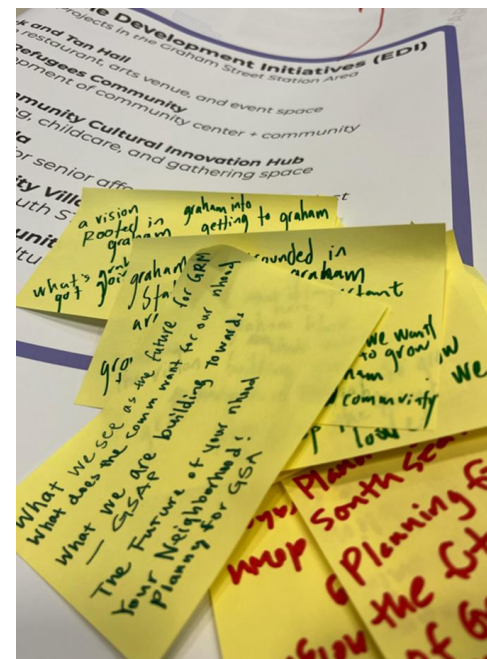 e Development Initiatives (EDI)
rojects in the Graham Street Station Area
k and Tan Hall
restaurant, arts venue, and event space
Refugees Community
opment of community center + community
mmunity Cultural Innovation Hub
g, childcare, and gathering space
la
or senior affo
ity Villa
st
uth S
unit
ltu
a vision
rooted in
graham
graham into
getting to graham
what's
got
graham
Sta
are
gro
rounded in
graham
we want
to grow
community
low
we
What we see as the future for GRM
What does the comm want for our nhood
What we are building towards
— GSAP
The Future of your nhood
Your Neighborhood:
Planning for GSA
Plann
South Sea
Planning fo
the fut
of G